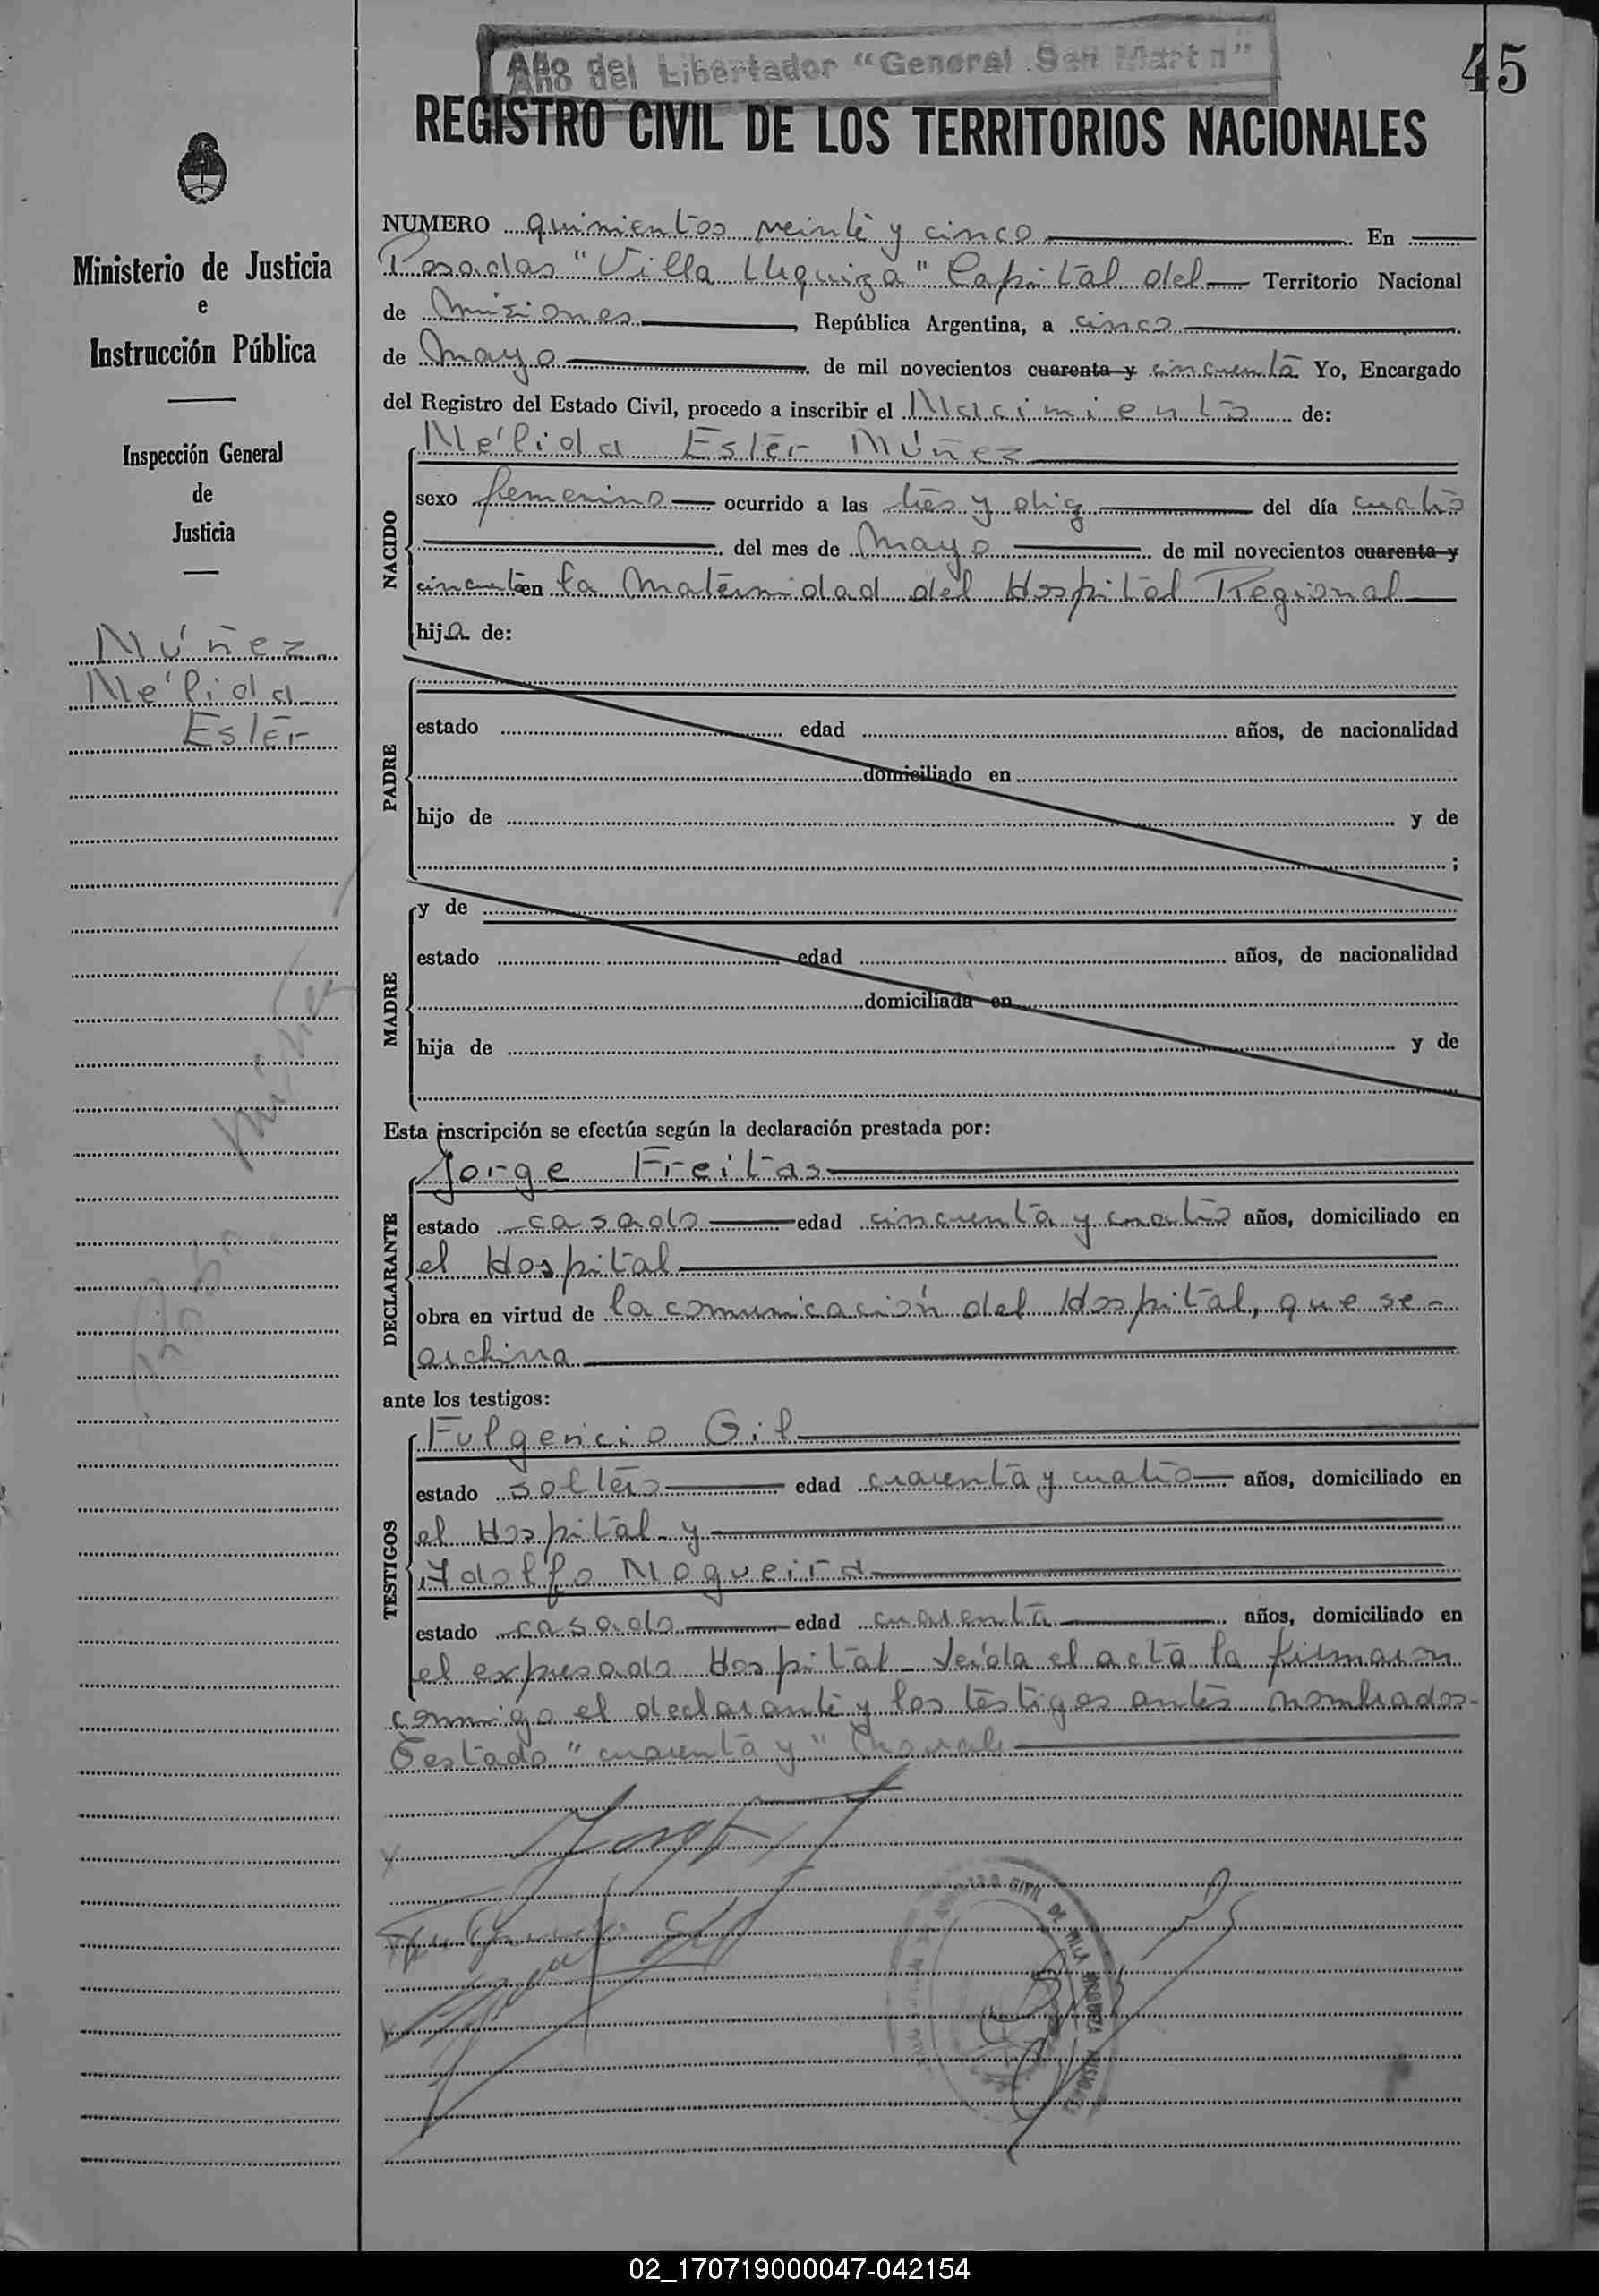 Año del Libertador "General San Martín"
45
REGISTRO CIVIL DE LOS TERRITORIOS NACIONALES
Ministerio de Justicia
e
Instrucción Pública
Inspección General
de
Justicia
Núñez
Nélida
Ester
NUMERO quinientos veinte y cinco En
Posadas "Villa Urquiza" Capital del Territorio Nacional
de Misiones, República Argentina, a cinco
de Mayo de mil novecientos cuarenta y cincuenta Yo, Encargado
del Registro del Estado Civil, procedo a inscribir el Nacimiento de:
Nélida Ester Núñez
NACIDO
sexo femenino ocurrido a las tres y diez del día cuatro
del mes de Mayo de mil novecientos cuarenta y
cincuenta en la Maternidad del Hospital Regional
hija de:
PADRE
estado edad años, de nacionalidad
domiciliado en
hijo de y de
;
MADRE
y de
estado edad años, de nacionalidad
domiciliada en
hija de y de
Esta inscripción se efectúa según la declaración prestada por:
DECLARANTE
Jorge Freitas
estado casado edad cincuenta y cuatro años, domiciliado en
el Hospital
obra en virtud de la comunicación del Hospital, que se
archiva
ante los testigos:
TESTIGOS
Fulgencio Gil
estado soltero edad cuarenta y cuatro años, domiciliado en
el Hospital y
Adolfo Nogueira
estado casado edad cuarenta años, domiciliado en
el expresado Hospital - Leída el acta la firmaron
conmigo el declarante y los testigos antes nombrados-
Testado "cuarenta y" No vale
02_170719000047-042154